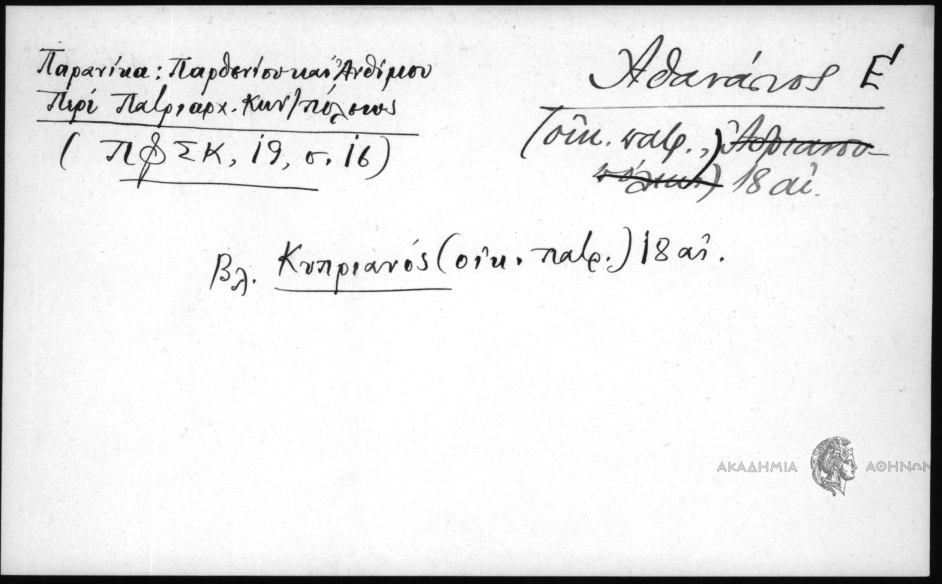 Παρανίκα: Παρθενίου και Ἀνθίμου
Περί Πατριαρχ. Κων/πόλεως
(ΠΦΣΚ, 19, σ. 16)
Ἀθανάσιος Ε΄
(οἰκ. πατρ.,) Ἀδριανου-
πόλεως) 18 αἰ.
Βλ. Κυπριανός (οἰκ. πατρ.) 18 αἰ.
ΑΚΑΔΗΜΙΑ ΑΘΗΝΩΝ